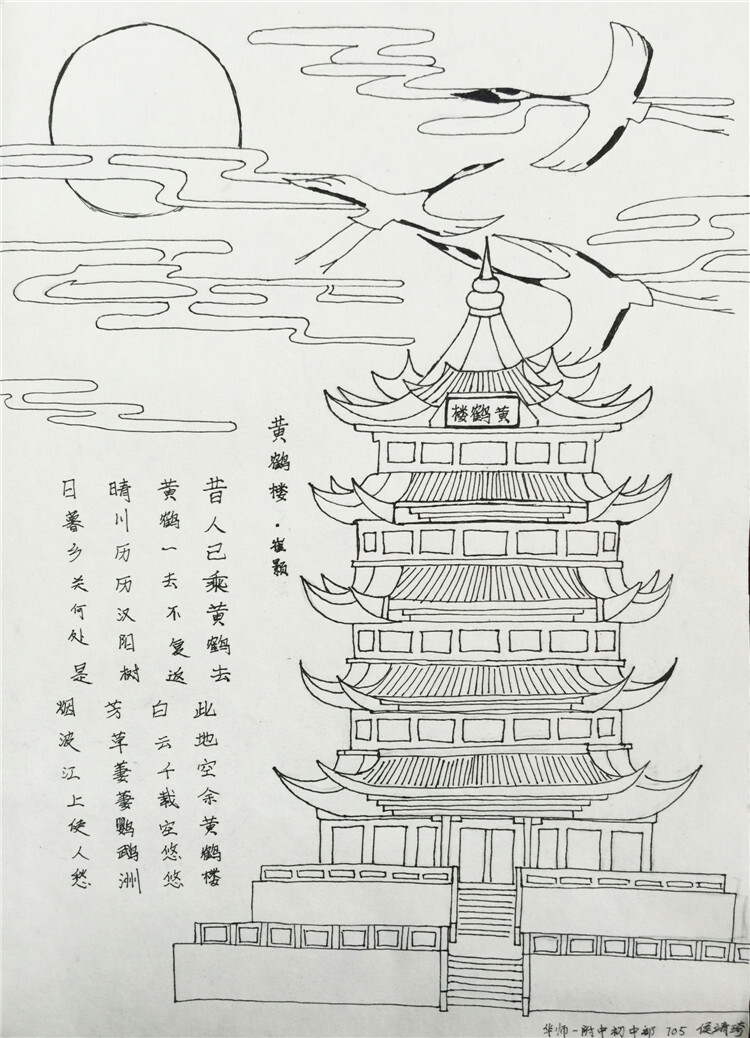 黄鹤楼
黄鹤楼·崔颢
昔人已乘黄鹤去 此地空余黄鹤楼
黄鹤一去不复返 白云千载空悠悠
晴川历历汉阳树 芳草萋萋鹦鹉洲
日暮乡关何处是 烟波江上使人愁
华师一附中初中部 705